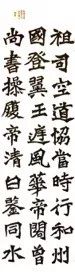 祖司空道協當時行和州
國登翼王風華帝曾
尚書操履清白鑒同水